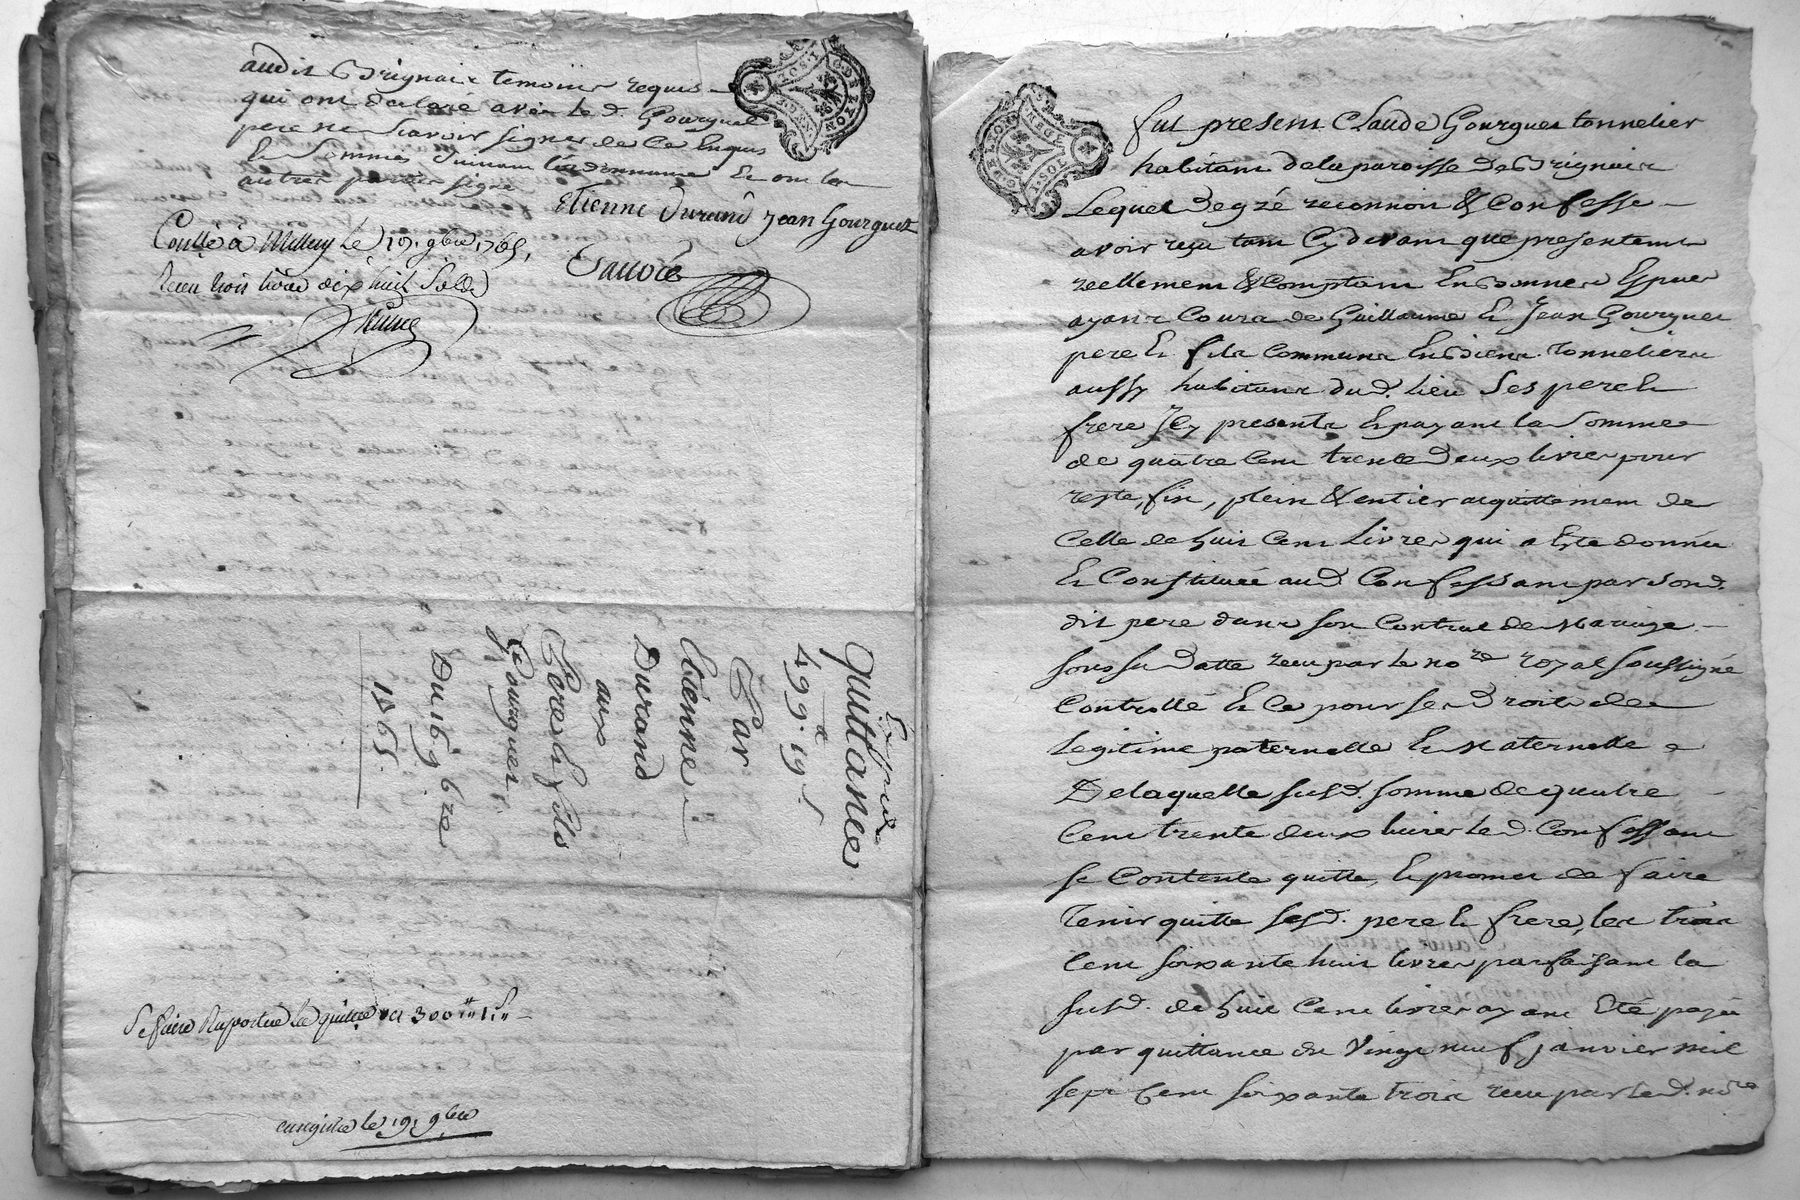 audit Brignais temoins requis
qui ont declaré avec led. Gourguet
pere ne scavoir signer de ce enquis
Et sommés suivant l'ordonnance Et ont les
autres parties signé
Etienne Durand Jean Gourguet
Sauvée
Conllé à Millery le 19. 9bre 1765,
Receu trois livres dix huit Solds
Expedié
Quittance
499.lt 19.s
Par
Etienne
Durand
aux
Pere Et fils
Gourguet
Du 16 9bre
1765.
Se faire Raporter la quittce de 300lt 1s
enregistré le 19. 9bre
G. DE LYON
fut present Claude Gourguet tonnelier
habitant dela paroisse de Brignais
Lequel degré reconnoit & Confesse
avoir reçu tant Cy devant que presentement
reellement & Comptant En bonnes Especes
ayant Cours de Guillaume Et Jean Gourguet
pere Et fils Communs En biens tonneliers
aussy habitants dud. lieu Ses pere Et
frere Icy presents Et payant la Somme
de quatre Cent trente deux livres pour
reste, fin, plein & entier acquittement de
Celle de huit Cent Livres qui a Este donnée
Et Constituée aud. Confessant par sond.
dit pere dans son Contrat de Mariage
sous sa datte receu par le nore royal soussigné
Controllé Et Ce pour ses Droits de
Legitime paternelle Et Maternelle
Delaquelle susd. somme de quatre
Cent trente deux livres led. Confessant
se Contente quitte, Et promet de faire
Tenir quitte sesd. pere Et frere, les trois
Cent soixante huit livres parfaisant la
susd. de huit Cent livres ayant Eté payé
par quittance du Vingt neuf janvier mil
sept Cent soixante trois receu par led. nore